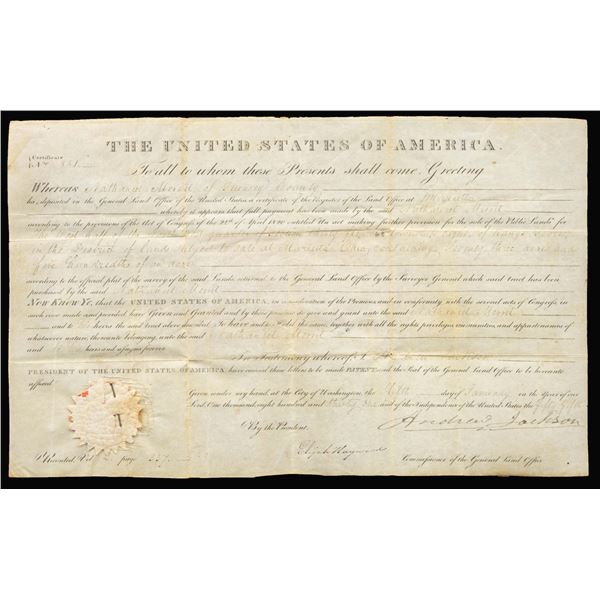 THE UNITED STATES OF AMERICA.
Certificate
To all to whom these Presents shall come, Greeting
WHEREAS Nathaniel of County
has deposited in the General Land Office of the United States, a certificate of the Register of the Land Office at Marietta
whereby it appears that full payment has been made by the said
according to the provisions of the Act of Congress of the 24th of April 1820, entitled An act making further provision for the sale of the Public Lands for
in the District of Lands subject to sale at Marietta Ohio, containing Twenty three acres and
five hundredths of an acre
according to the official plat of the survey of the said Lands, returned to the General Land Office by the Surveyor General, which said tract has been
purchased by the said Nathaniel
NOW KNOW YE, that the UNITED STATES OF AMERICA, in consideration of the Premises, and in conformity with the several acts of Congress in
such case made and provided, have Given and Granted, and by these presents do give and grant unto the said Nathaniel
and to his heirs the said tract above described, To have and to hold the same, together with all the rights, privileges, immunities, and appurtenances, of
whatsoever nature, thereunto belonging, unto the said Nathaniel
and to his heirs and assigns forever.
In Testimony whereof, I, Andrew Jackson
PRESIDENT OF THE UNITED STATES OF AMERICA, have caused these Letters to be made PATENT, and the Seal of the General Land Office to be hereunto
affixed.
Given under my hand, at the City of Washington, the day of January in the Year of our
Lord One thousand eight hundred and thirty one and of the Independence of the United States the fifty fifth
By the President. Andrew Jackson
Elijah Hayward
Commissioner of the General Land Office.
Recorded, Vol page